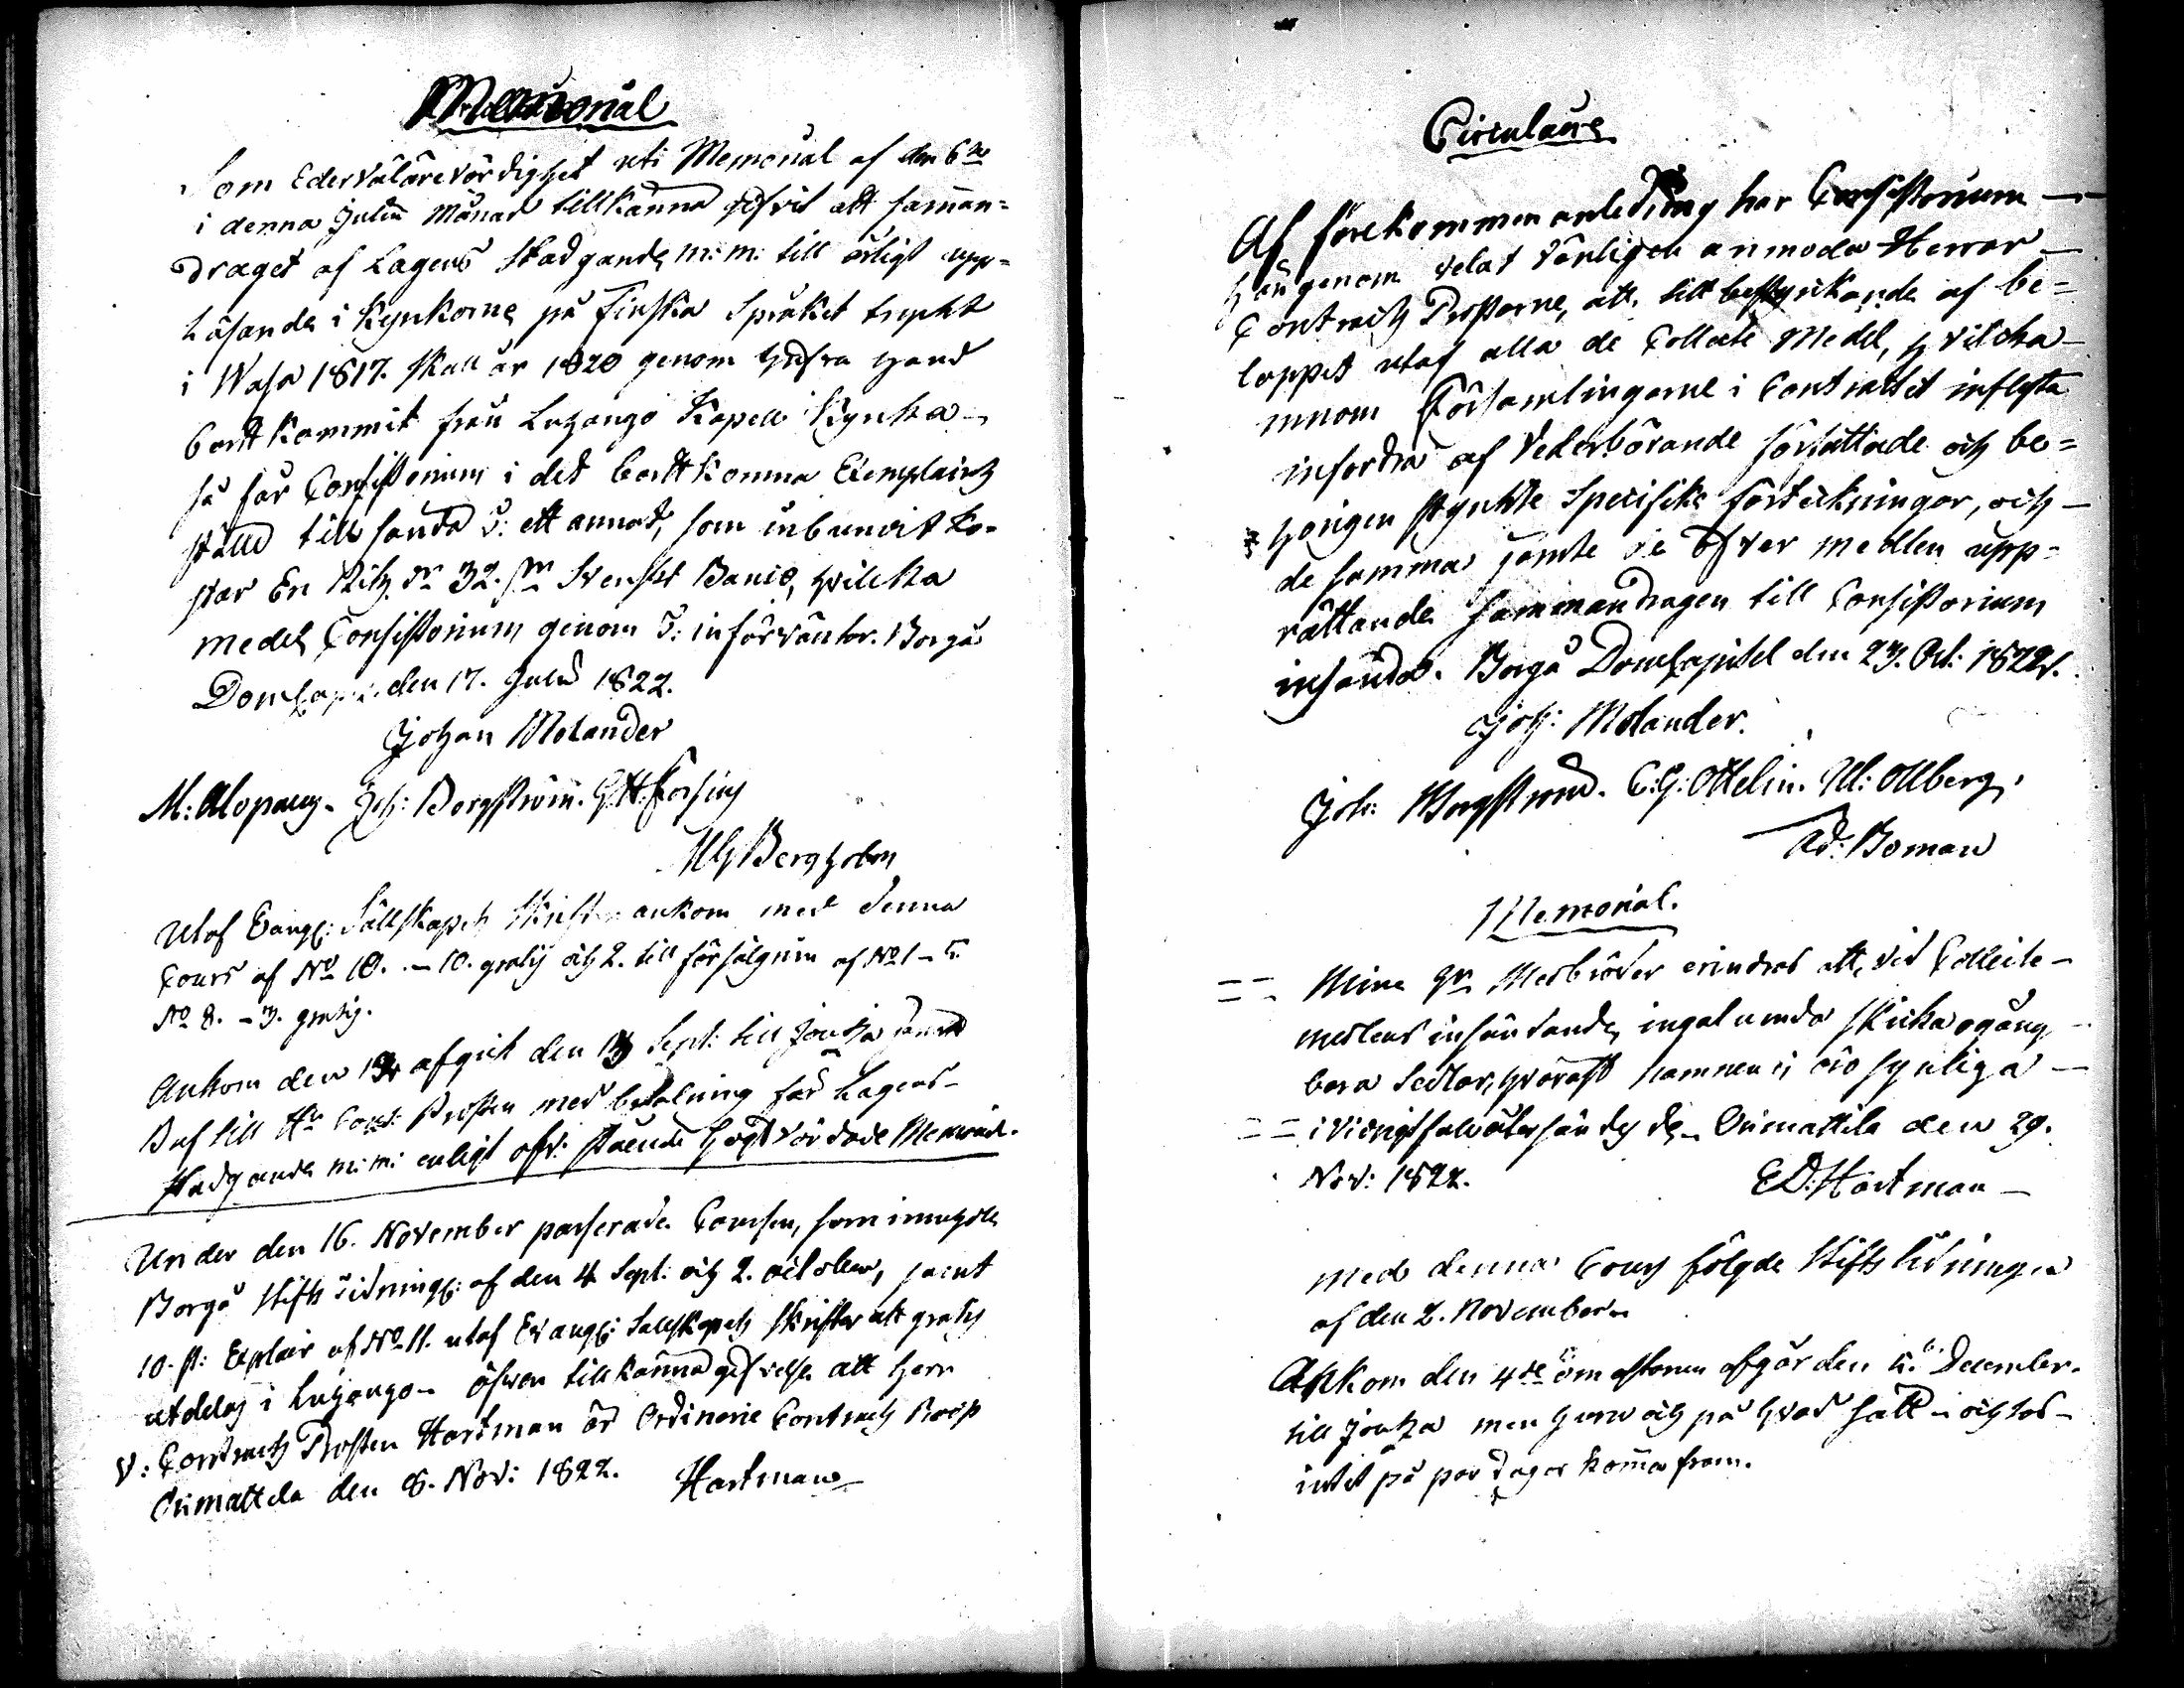 Memorial
Som Eder Välärevördighet uti Memorial af den 6te
i denna Julii Månad tillkänna gifvit att samman-
draget af Lagens Stadgande m: m: till årligt upp-
läsande i Kyrkorna på Finska Språket tryckt
i Wasa 1817. skall år 1820 genom tjufva hand
bortkommit från Luhango Kapell Kyrka
så får Consistorium i det bortkomna Exemplairets
ställe tillsända T: ett annat, som inbundit ko-
star En R:d 32. sk Svenskt Banco, hvilcka
medel Consistorium genom T: införväntar. Borgå
Domcapit. den 17. Julii 1822.
Johan Molander
M: Alopaeus. Joh: Borgström. G. H: Forsius
MG Bergholm
Utaf Evang: Sällskapets Skrifter ankom med denna
Cours af No 10. – 10. gratis och 2. till försälgning af No 1 – 5.
No 8. – 3. gratis.
Ankom den 13 afgick den 13 Sept: till Joutsa jemte
Bref till Hr Cont: Prosten med betalning för Lagens
stadgande m: m: enligt ofv: stående Högtvördade Memorial.
Under den 16. November passerade Coursen, som innehöll
Borgå Stifts Tidning: af den 4 Sept: och 2. october, samt
10. st: Explair af No 11. utaf Evang: Sällskapets Skrifter att gratis
utdelas i Luhango – äfven tillkännagifvelse att Herr
V: Contracts Prosten Hartman är Ordinarie Contracts Prost
Orimattila den 8. Nov: 1822. Hartman
Circulaire
Af förekommen anledning har Consistorium
härigenom velat vänligen anmoda Herrar
Contracts Prostarne, att, till bestyrkande af be-
loppet utaf alla de Collecte Medel, hvilcka
innom Församlingarne i Contractet inflyta
infordra af Vederbörande författade och be-
hörigen styrkte Specifike förtekningar, och
de samma jemte de öfver medlen upp-
rättande Sammandragen till Consistorium
insända. Borgå Domcapitel den 23. Oct: 1822.
Joh: Molander.
Joh: Borgström. C: G: Ottelin. M: Ollberg.
Ad: Boman
Memorial.
Mine Hr Medbröder erindras att, vid Collecte
medlens insändande, ingalunda skicka ogång-
bara Sedlar, hvarest namnen ej äro synliga
i vidrigt fall återsändes de. Orimattila den 29.
Nov: 1822. ED: Hartman
Med denna Cours följde Stifts tidningen
af den 2. November.
Ankom den 4de om aftonen afgår den 5. December.
till Joutsa men huru och på hvad sätt – och los-
intet på par dagar komma fram.